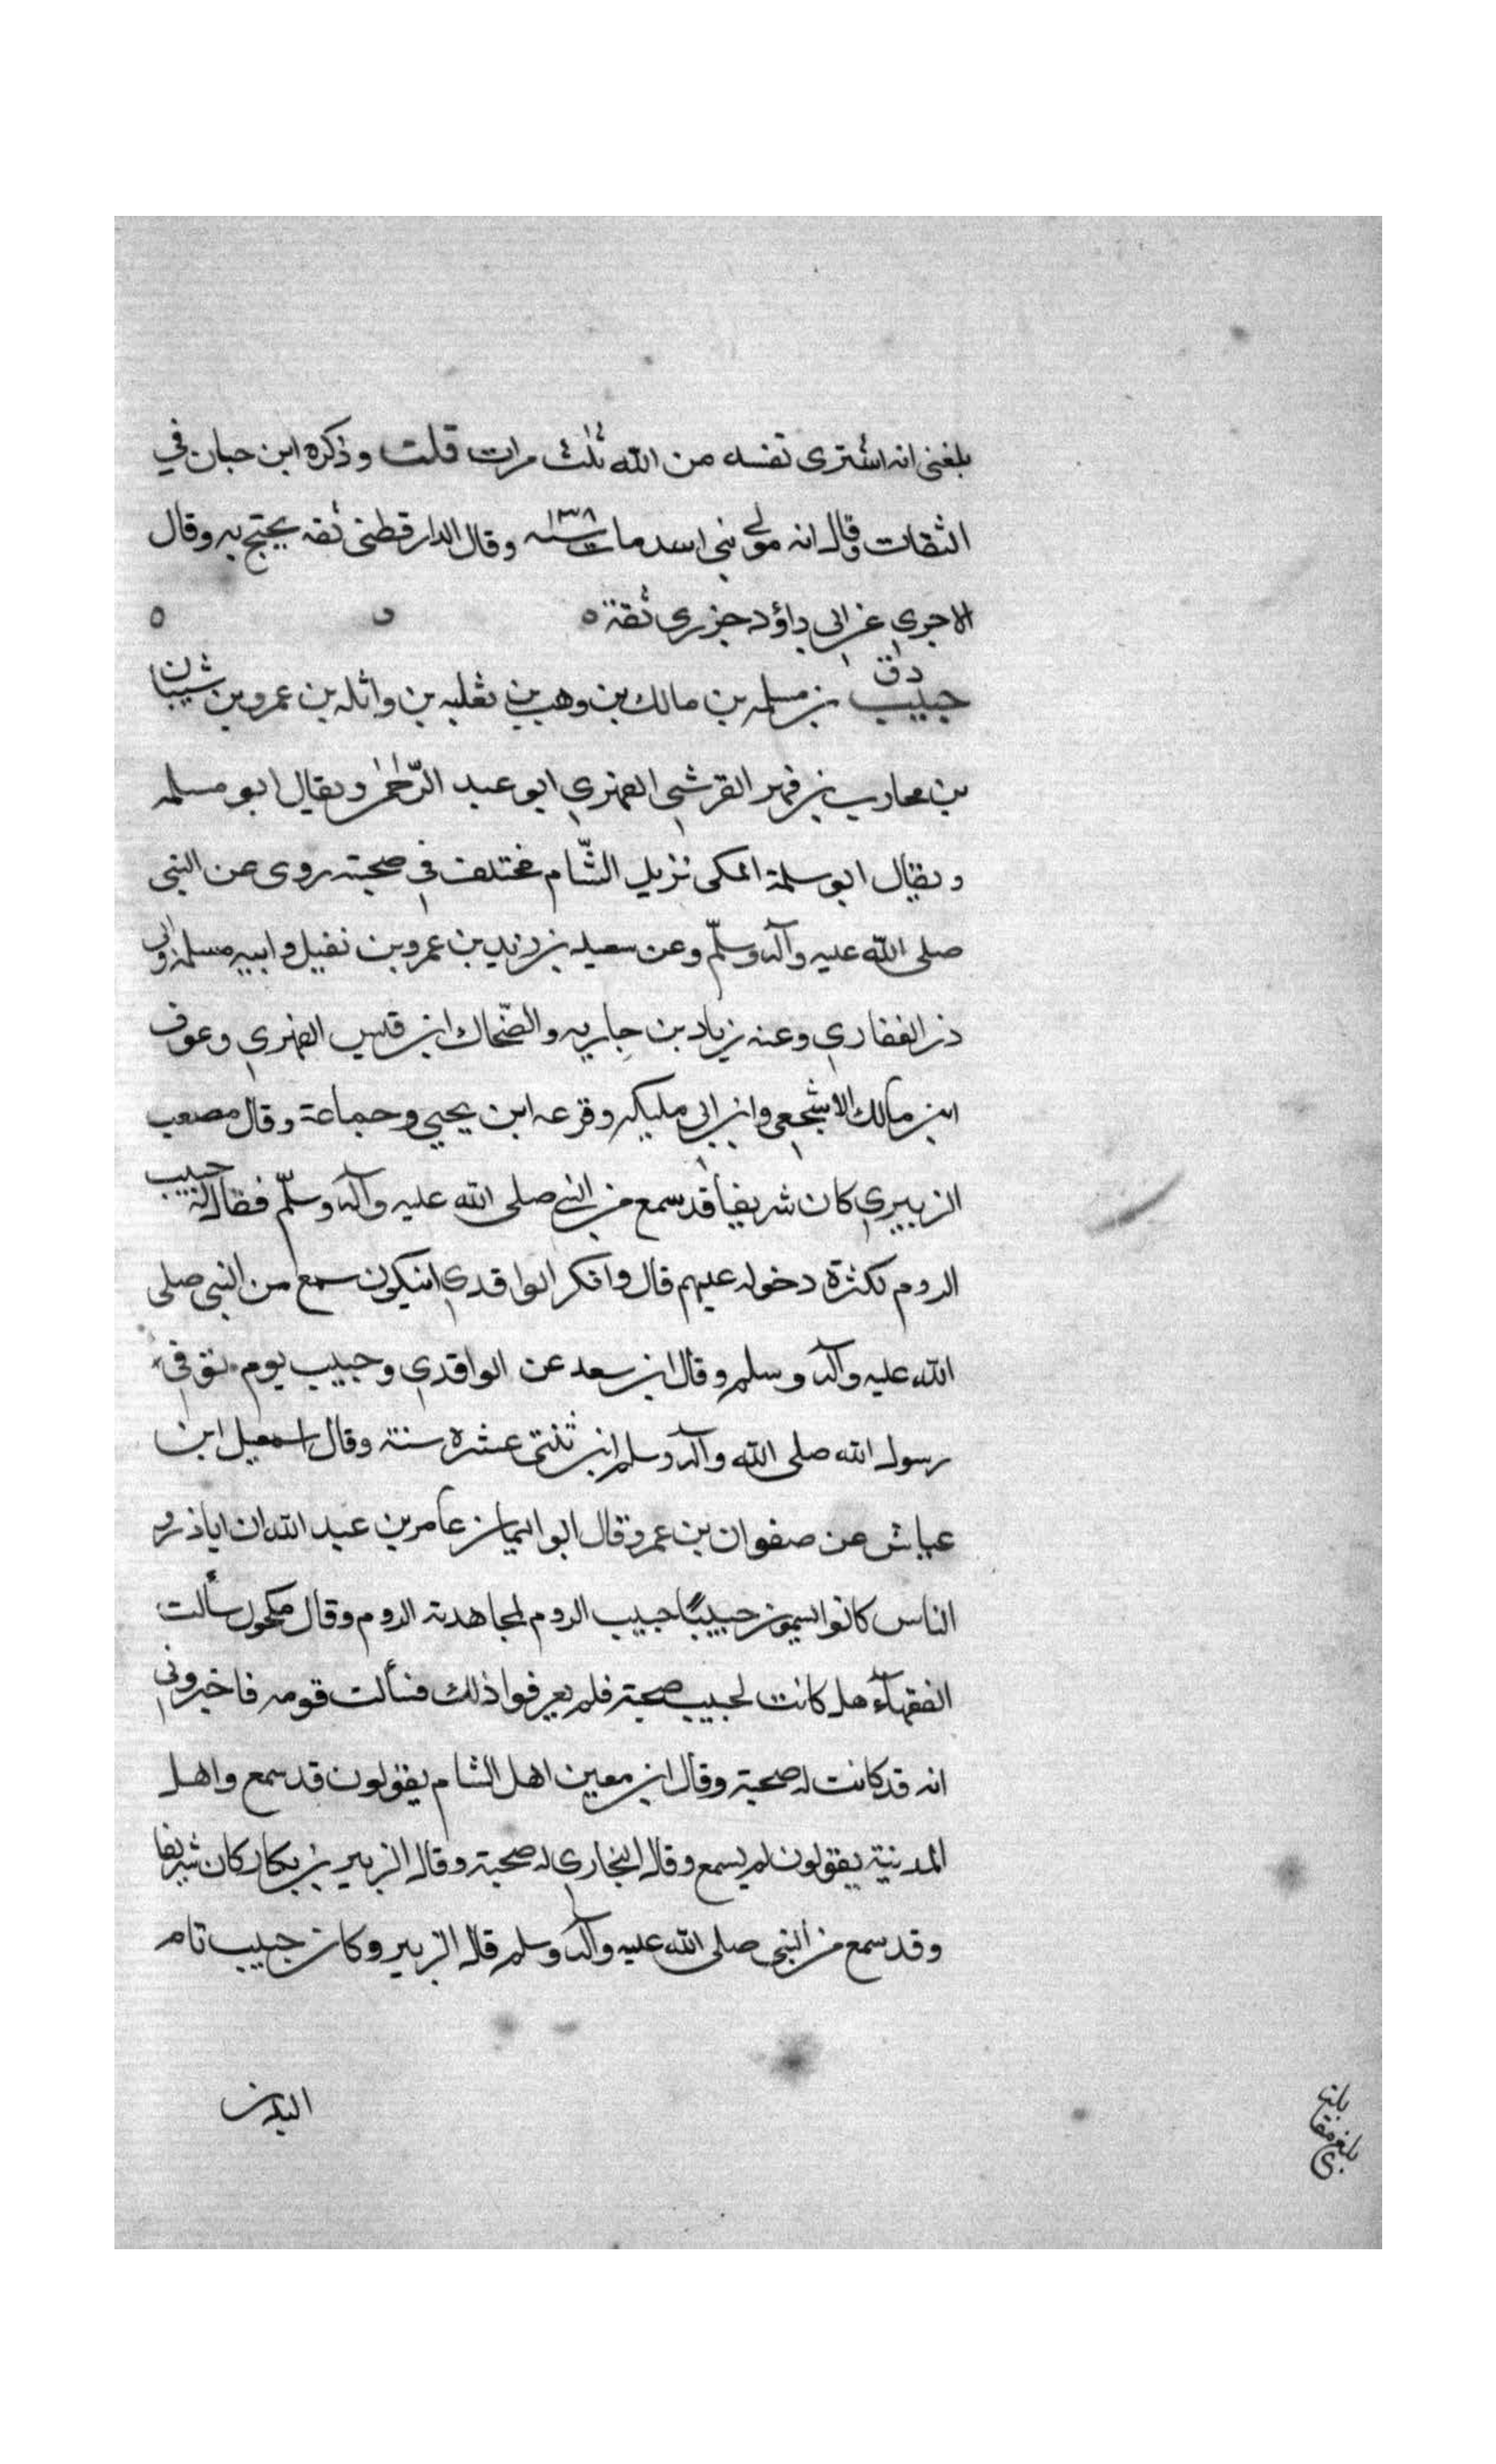 بلغنى انه اشترى نفسه من الله ثلث مرات قلت وذكره ابن حبان في
الثقات وقال انه مولى بنى اسد مات سنة ١٣٨ وقال الدارقطنى ثقه يحتج به وقال
الاجري عن ابى داؤد جزرى ثقة ه
د ق
حبيب بن مسلمه بن مالك بن وهب بن ثعلبه بن واثله بن عمرو بن شيبان
بن محارب بن فهر القرشى الفهري ابو عبد الرّحمٰن ويقال ابو مسلمه
ويقال ابو سلمة المكى نزيل الشّام مختلف في صحبته روى عن النبى
صلى الله عليه وآله وسلّم وعن سعيد بن زيد بن عمرو بن نفيل وابيه مسلمه وابى
ذر الغفاري وعنه زياد بن جاريه والضّحاك ابن قيس الفهري وعوف
ابن مالك الاشجعي وابن ابي مليكه وقزعه ابن يحيي وجماعة وقال مصعب
الزبيري كان شريفاً قد سمع من النبي صلى الله عليه وآله وسلّم فقال له حبيب
الروم لكثرة دخوله عليهم قال وانكر الواقدي انيكون سمع من النبي صلى
الله عليه وآله وسلم وقال ابن سعد عن الواقدي وحبيب يوم توفي
رسول الله صلى الله وآله وسلم ابن ثنتى عشره سنة وقال اسمعيل ابن
عياش عن صفوان بن عمرو قال ابو اليمان عامر بن عبد الله ان اباذر و
الناس كانوا يسمون حبيبًا حبيب الروم لمجاهدته الروم وقال مكحول سألت
الفقهآء هل كانت لحبيب صحبة فلم يعرفوا ذلك فسألت قومه فاخبروني
انه قد كانت له صحبة وقال ابن معين اهل الشام يقولون قد سمع واهل
المدنية يقولون لم يسمع وقال البخاري له صحبة وقال الزبير بن بكار كان شريفا
وقد سمع من النبي صلى الله عليه وآله وسلم قال الزبير وكان حبيب تام
البدن
بلغ